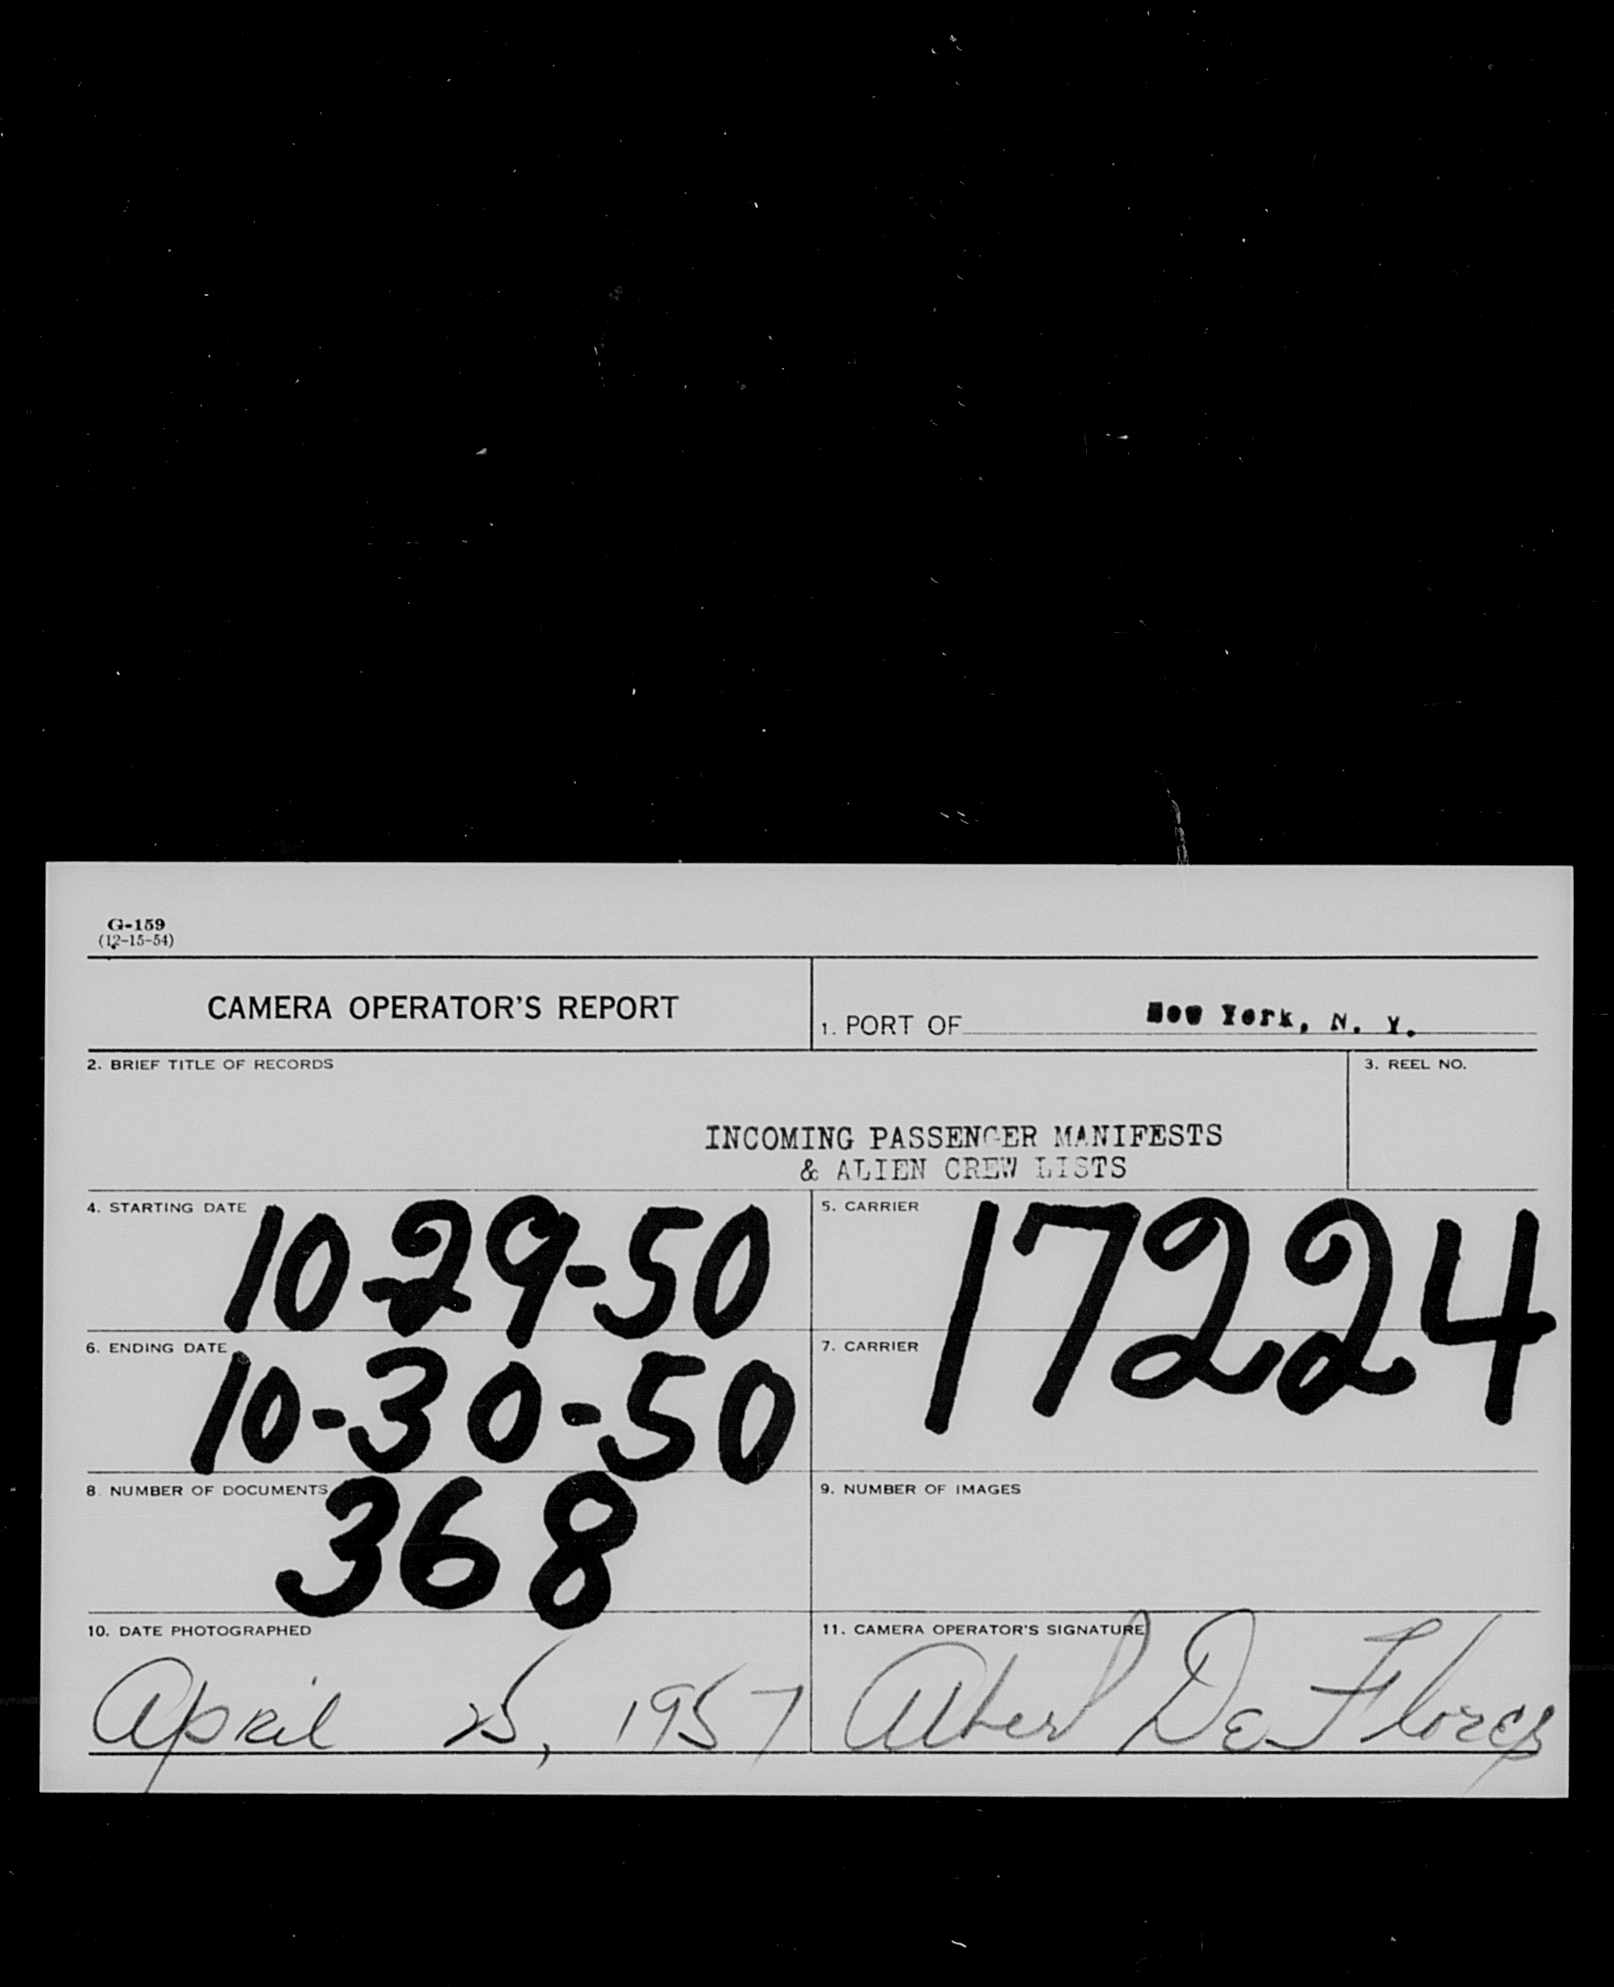 G-159
(12-15-54)
CAMERA OPERATOR'S REPORT
1. PORT OF New York, N. Y.
2. BRIEF TITLE OF RECORDS
3. REEL NO.
INCOMING PASSENGER MANIFESTS
& ALIEN CREW LISTS
4. STARTING DATE 10-29-50
5. CARRIER 17224
6. ENDING DATE 10-30-50
7. CARRIER
8. NUMBER OF DOCUMENTS 368
9. NUMBER OF IMAGES
10. DATE PHOTOGRAPHED
April 25, 1957
11. CAMERA OPERATOR'S SIGNATURE
Albert De Flores